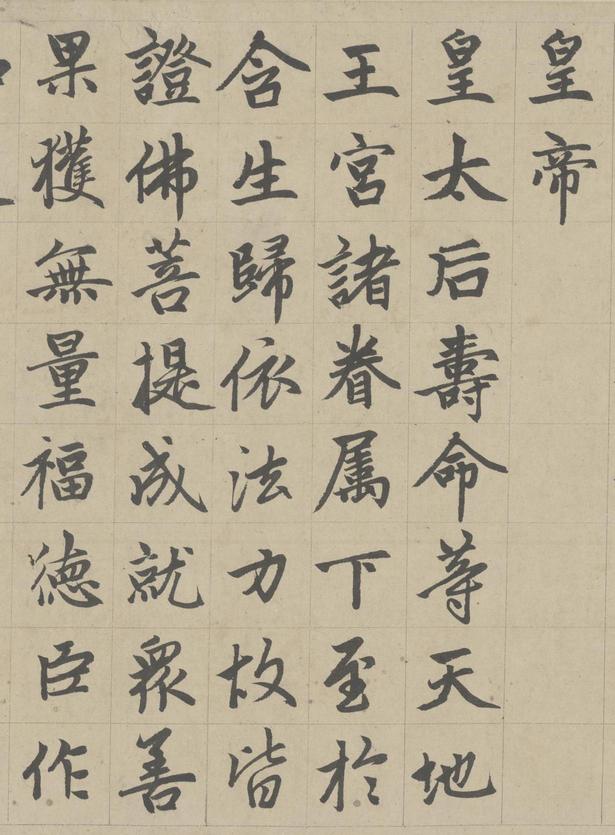 皇帝
皇太后壽命等天地
王宮諸眷属下至於
含生歸依法力故皆
證佛菩提成就衆善
果獲無量福德臣作